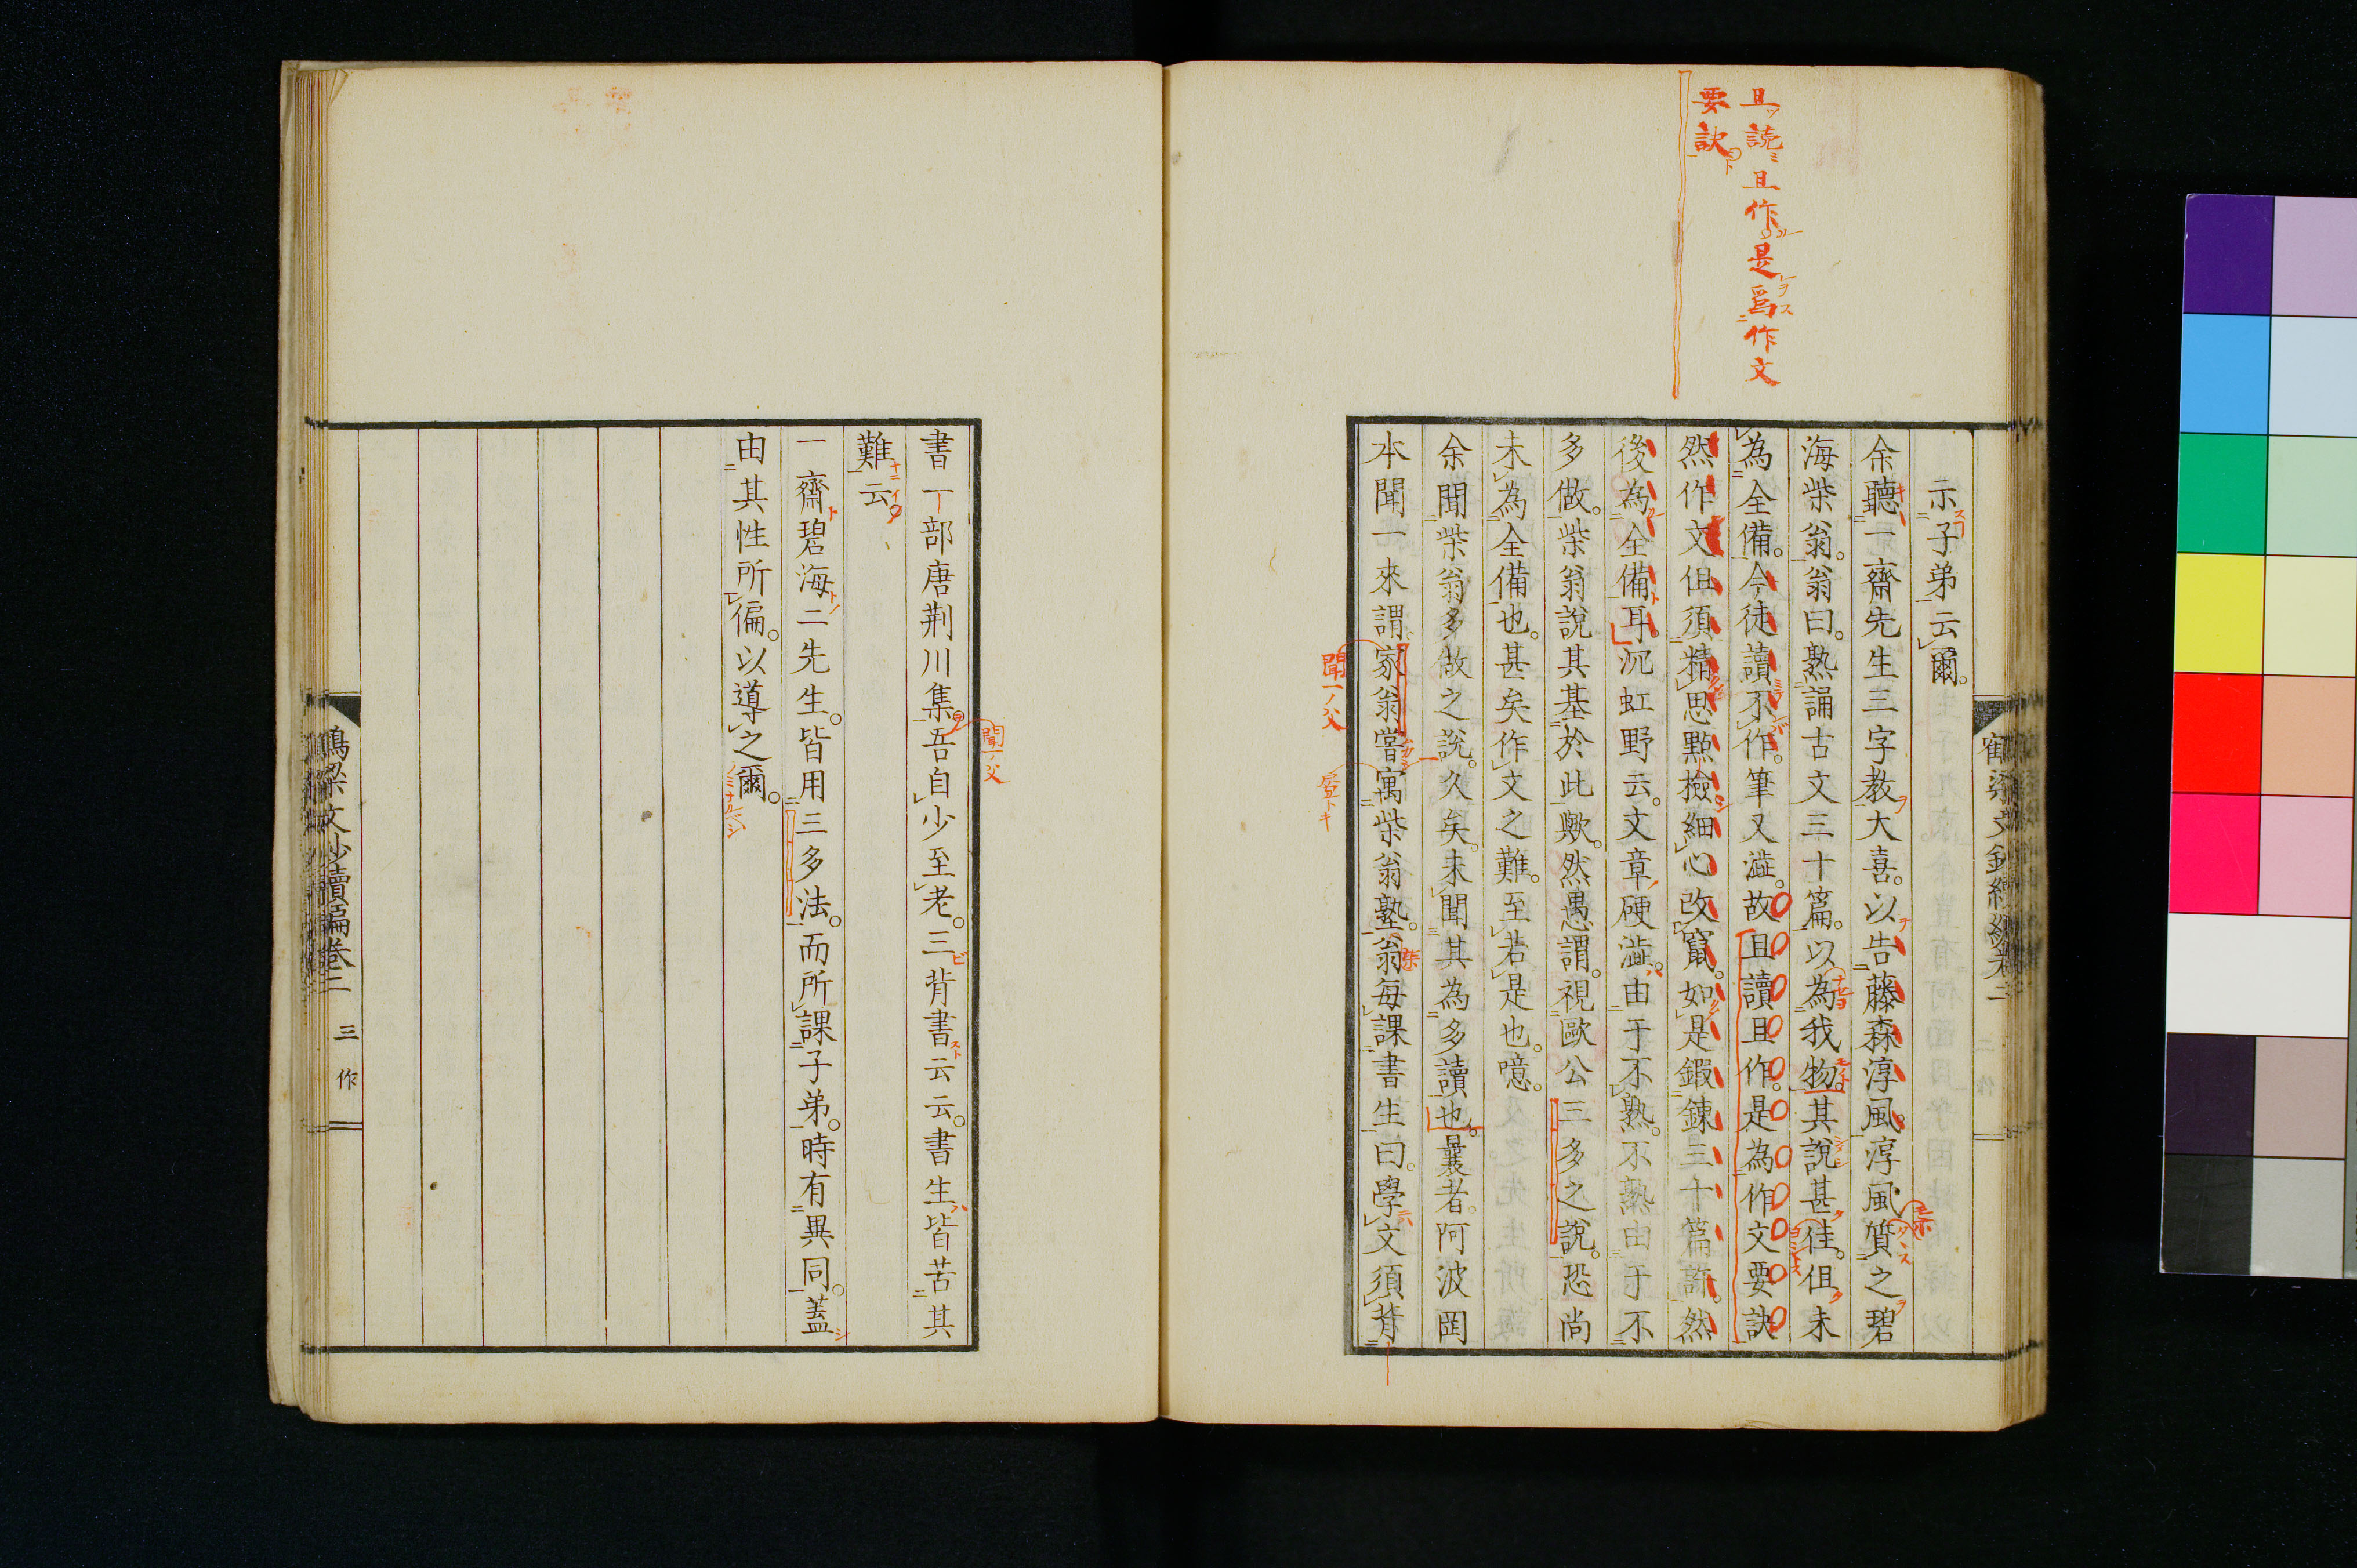 且読且作是爲作文
要訣
示子弟云爾。
余聽一齋先生三字教大喜。以告藤森淳風。淳風質之碧
海柴翁。翁曰。熟誦古文三十篇。以為我物。其說甚佳。但未
為全備。今徒讀不作。筆又澁。故且讀且作。是為作文要訣
然作文但須精思點檢細心改竄。如是鍜鍊三十篇許。然
後為全備耳。沉虹野云。文章硬澁。由于不熟。不熟由于不
多做。柴翁說其基於此歟。然愚謂。視歐公三多之說。恐尚
未為全備也。甚矣作文之難。至若是也。噫。
余聞柴翁多做之說。久矣。未聞其為多讀也。曩者。阿波岡
本聞一來謂。家翁嘗寓柴翁塾。翁每課書生曰。學文須背
聞一ノ父
書一部唐荆川集。吾自少至老。三背書云云。書生皆苦其
聞一父
難云。
一齋碧海二先生。皆用三多法。而所課子弟。時有異同。蓋
由其性所偏。以導之爾。
鶴梁文鈔續編卷二
三 作